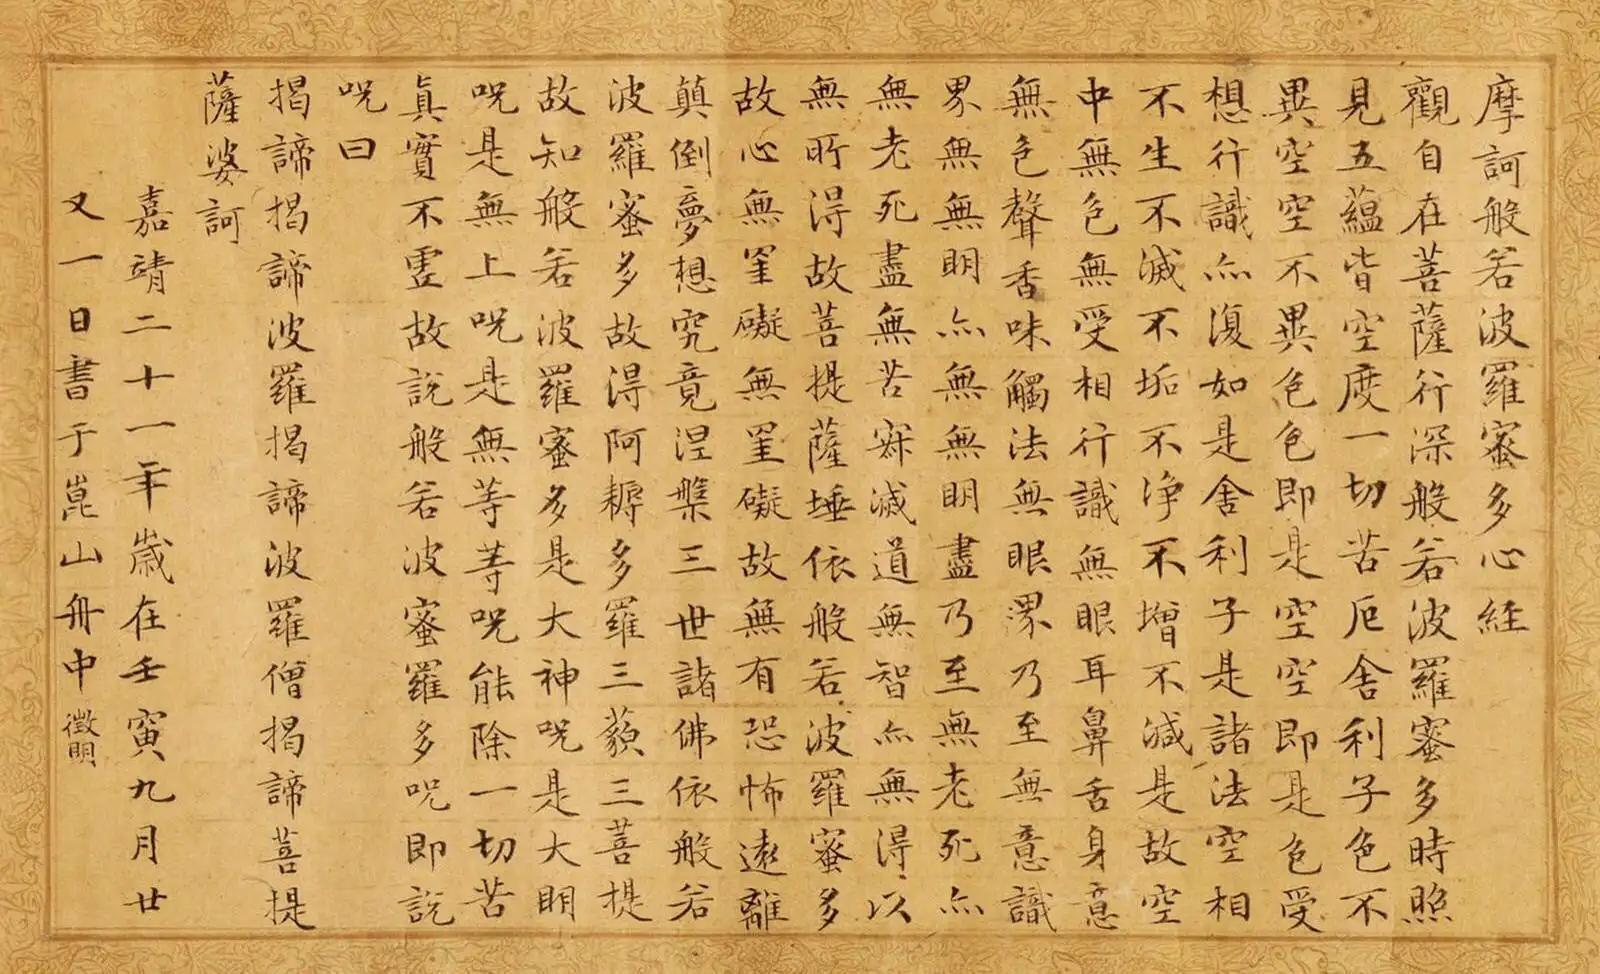 摩訶般若波羅蜜多心経
觀自在菩薩行深般若波羅蜜多時照
見五蘊皆空度一切苦厄舍利子色不
異空空不異色色即是空空即是色受
想行識亦復如是舍利子是諸法空相
不生不滅不垢不淨不增不減是故空
中無色無受相行識無眼耳鼻舌身意
無色聲香味觸法無眼界乃至無意識
界無無明亦無無明盡乃至無老死亦
無老死盡無苦寂滅道無智亦無得以
無所得故菩提薩埵依般若波羅蜜多
故心無罣礙無罣礙故無有恐怖遠離
顛倒夢想究竟涅槃三世諸佛依般若
波羅蜜多故得阿耨多羅三藐三菩提
故知般若波羅蜜多是大神呪是大明
呪是無上呪是無等等呪能除一切苦
眞實不虛故說般若波蜜羅多呪即説
呪曰
揭諦揭諦波羅揭諦波羅僧揭諦菩提
薩婆訶
嘉靖二十一年歲在壬寅九月廿
又一日書于崑山舟中徵明